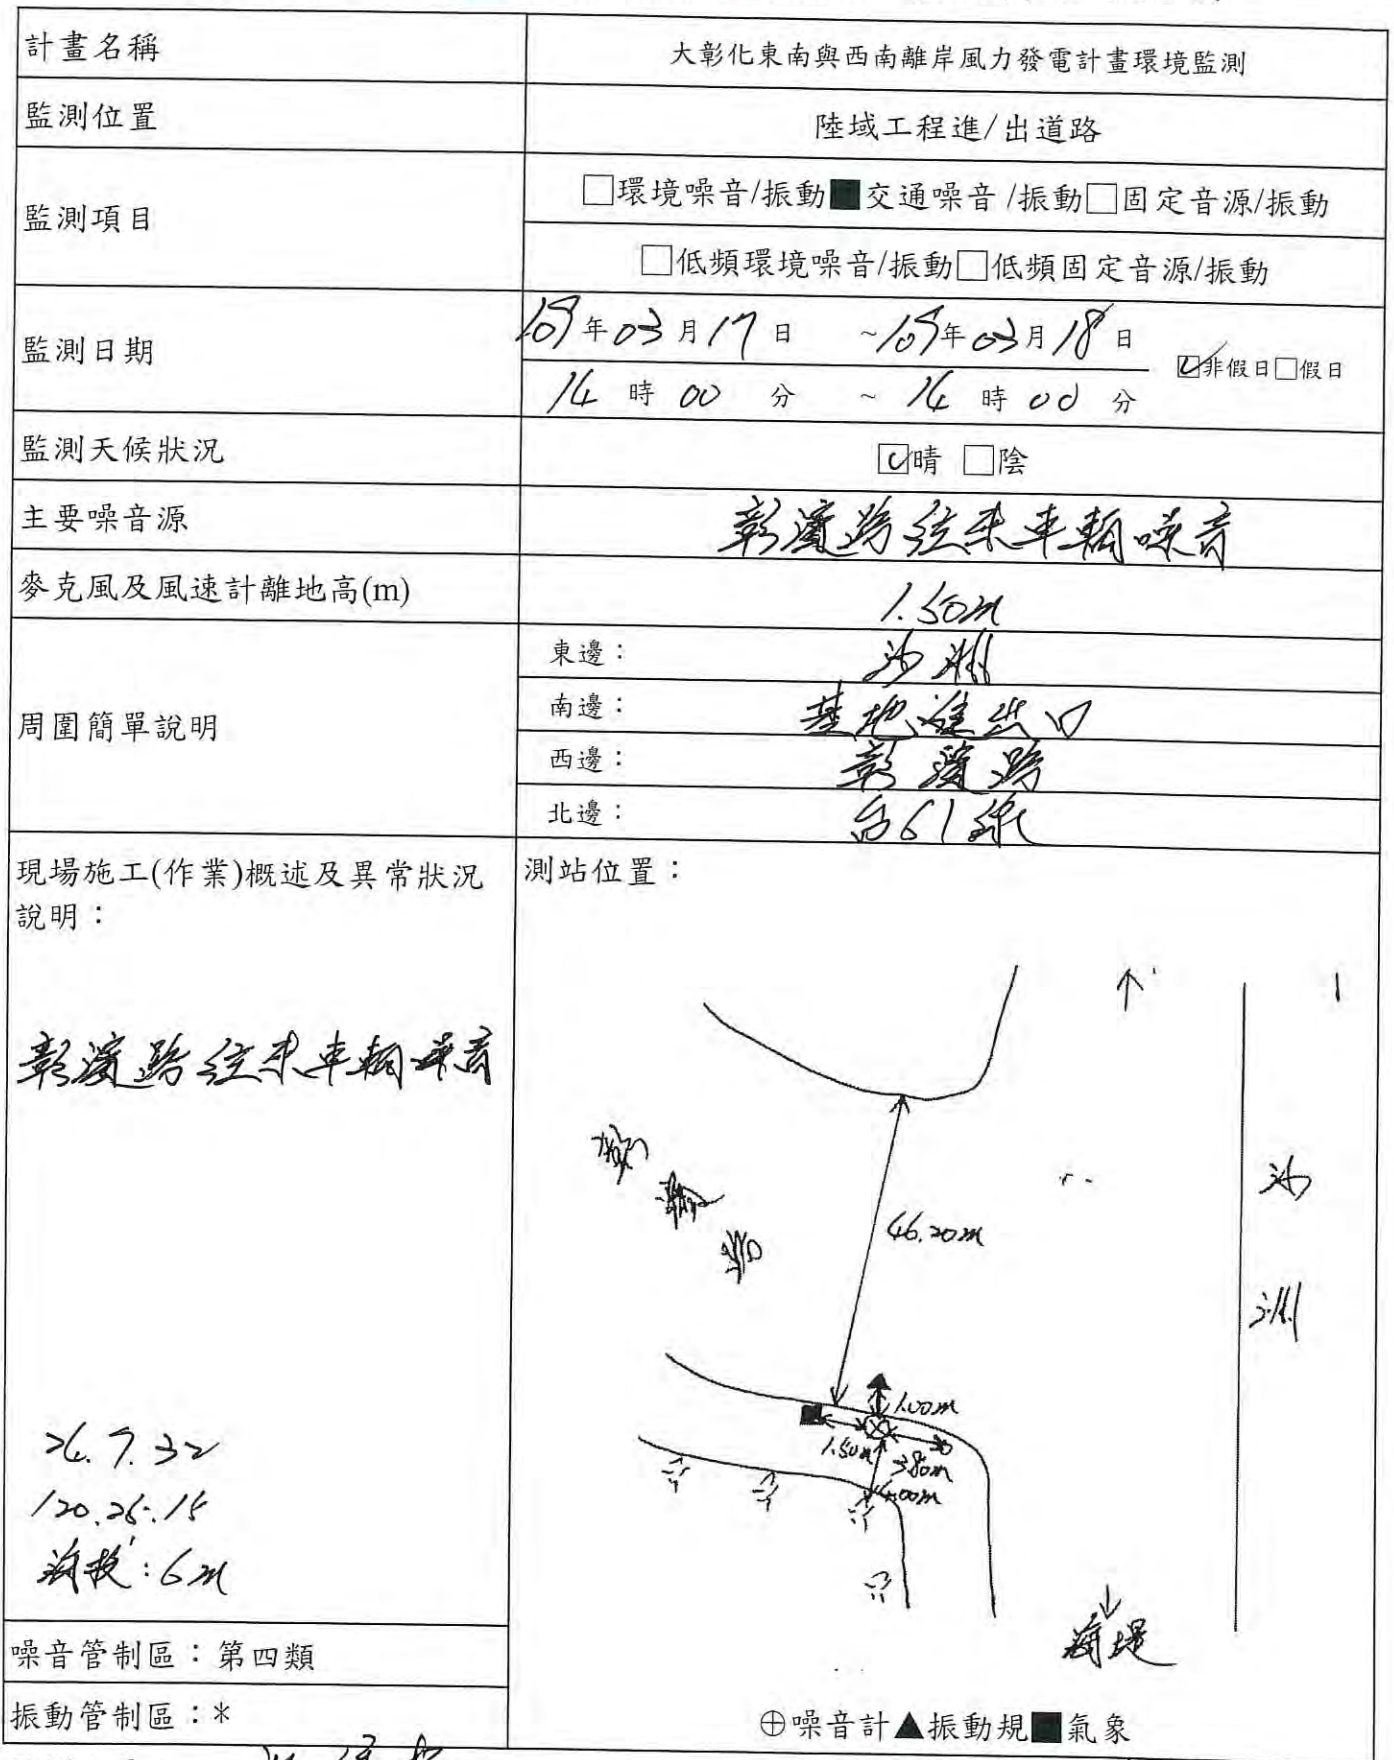 計畫名稱 大彰化東南與西南離岸風力發電計畫環境監測
監測位置 陸域工程進/出道路
監測項目 □環境噪音/振動■交通噪音/振動□固定音源/振動
□低頻環境噪音/振動□低頻固定音源/振動
監測日期 109年03月17日 ~109年03月18日 ☑非假日□假日
14時00分 ~ 14時00分
監測天候狀況 ☑晴 □陰
主要噪音源 彰濱路往來車輛噪音
麥克風及風速計離地高(m) 1.50m
周圍簡單說明 東邊： 沙洲
南邊： 基地進出口
西邊： 彰濱路
北邊： 台61線
現場施工(作業)概述及異常狀況
說明：
彰濱路往來車輛噪音
120.25.15
海拔：6m
噪音管制區：第四類
振動管制區：*
測站位置：
彰濱路
46.20m
沙洲
1.00m
1.50m
3.80m
4.00m
海堤
⊕噪音計▲振動規■氣象